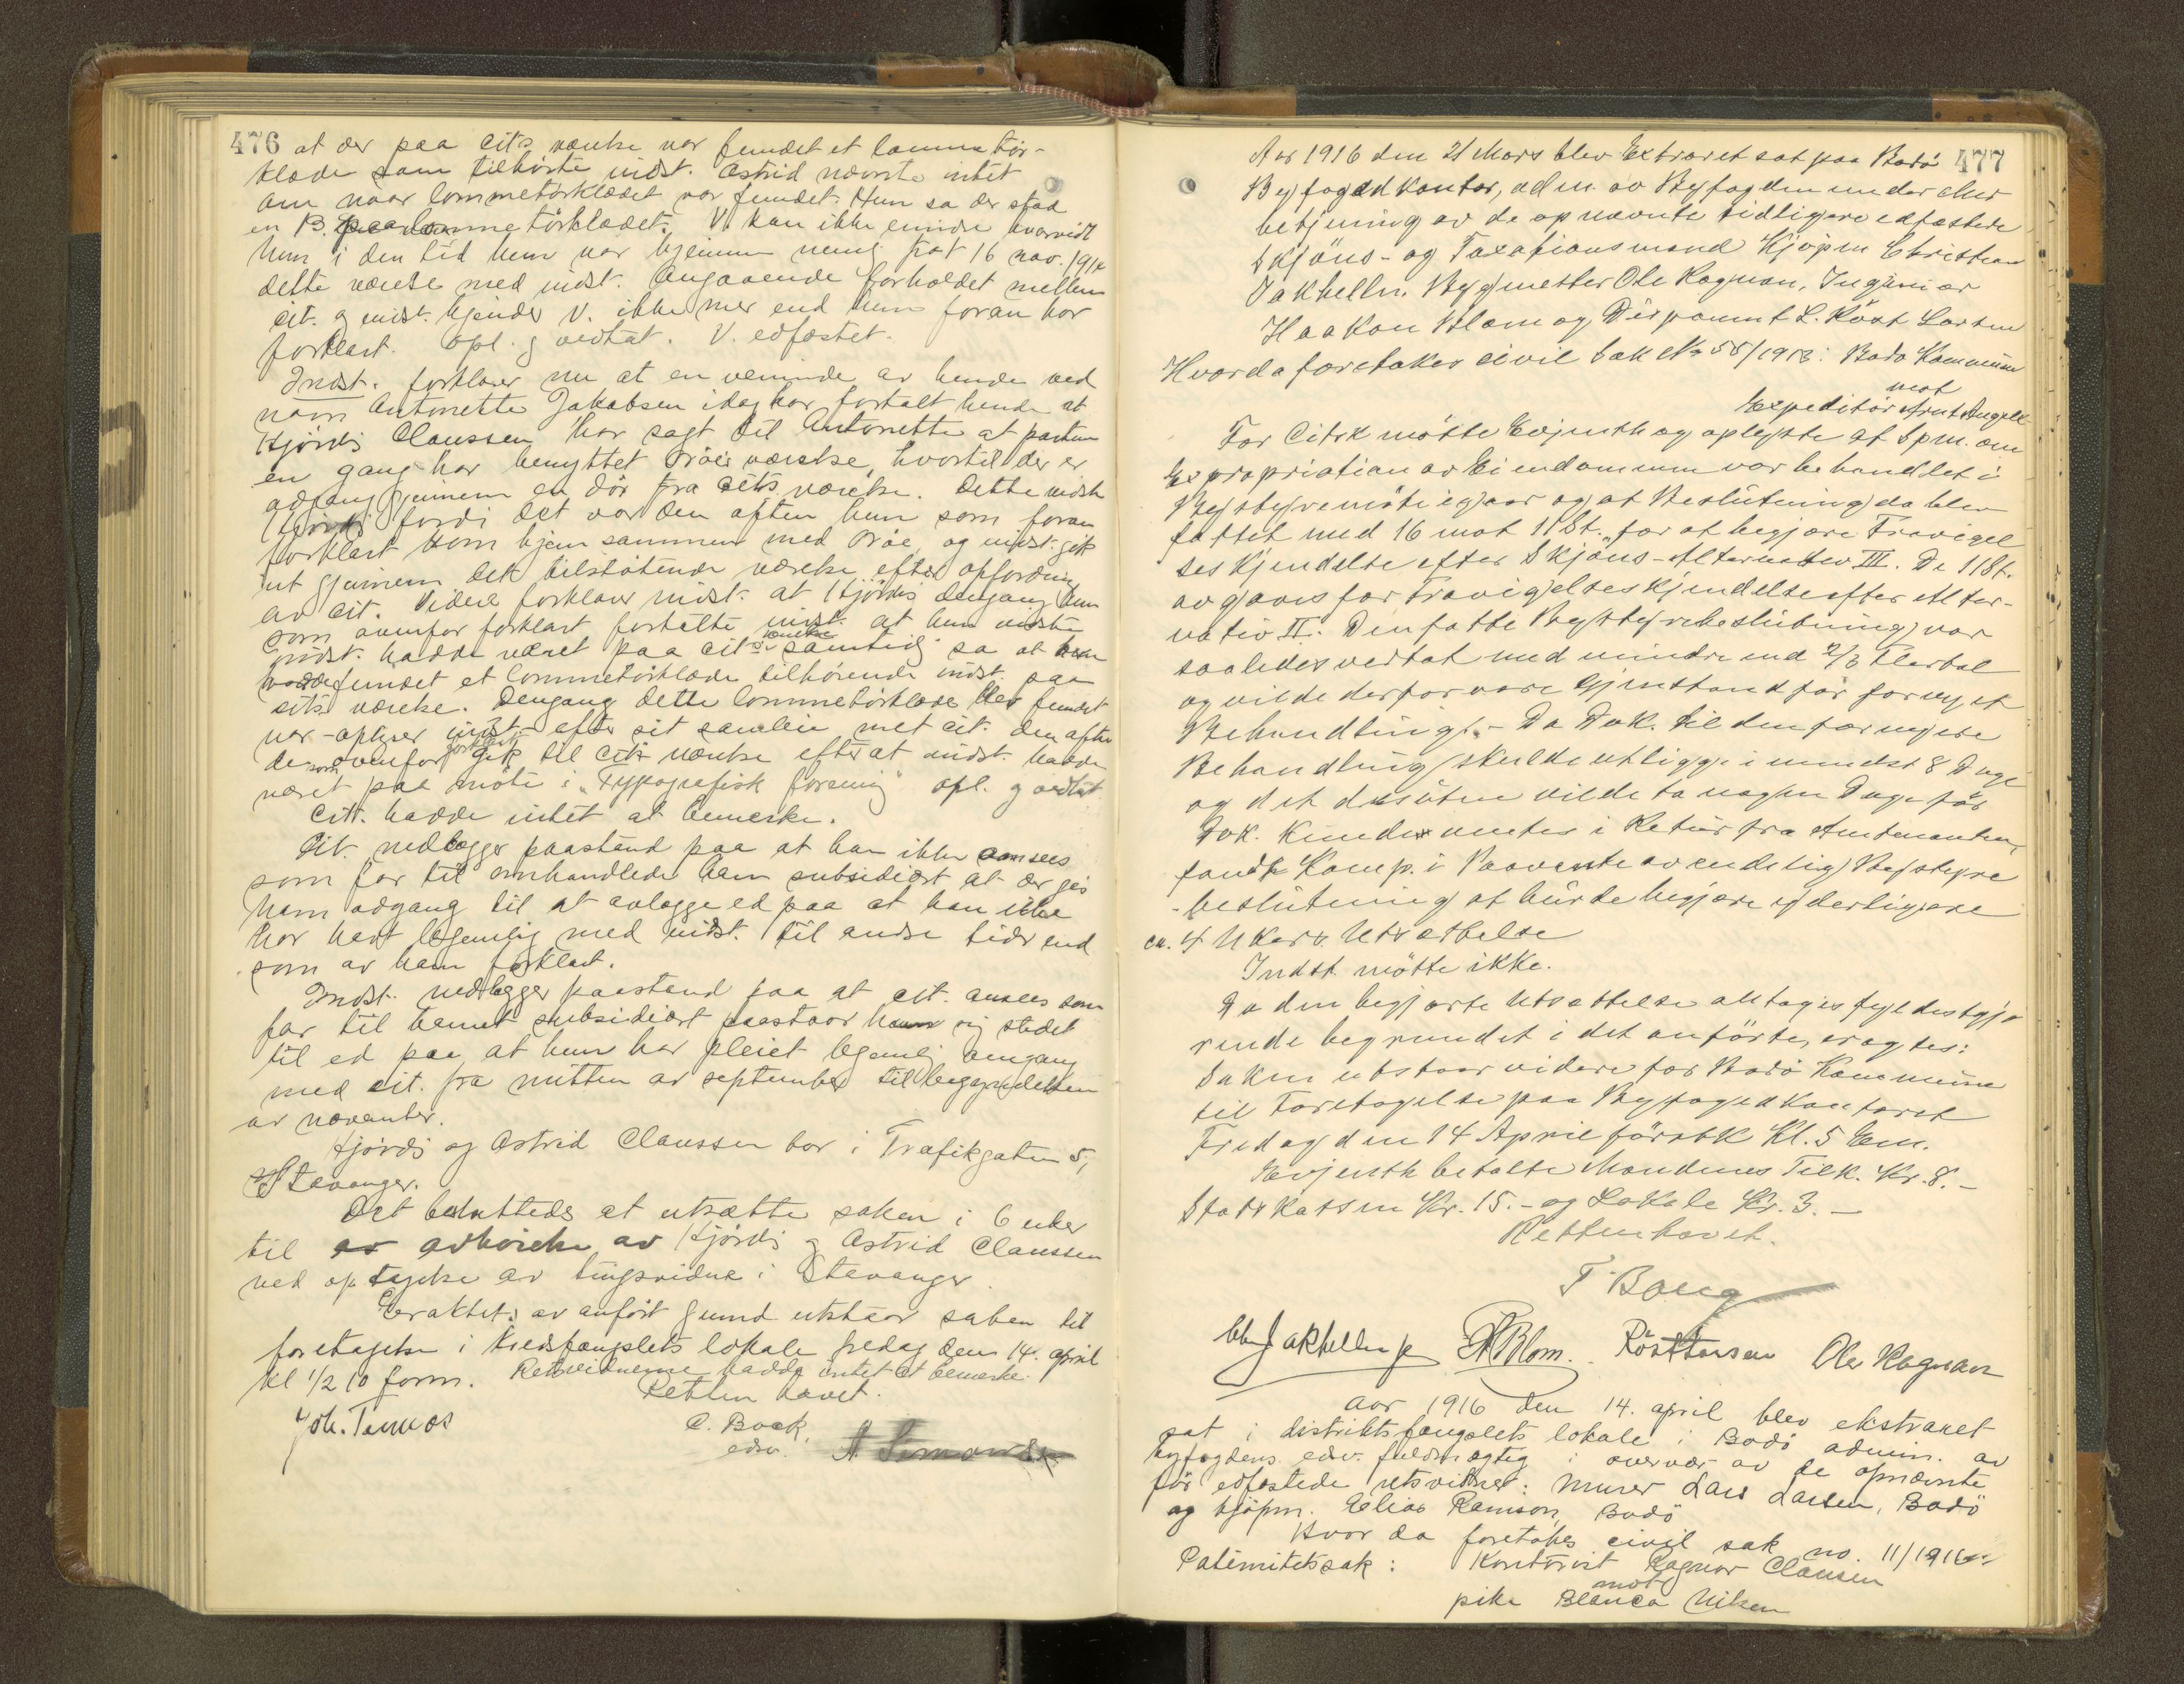 476
at der paa cits værelse var fundet et lommetør-
klæde som tilhørte indst. Astrid nævnte intet
om naar lommetørklædet var fundet. Hun sa der stod
en B. paa lommetørklædet. V. kan ikke erindre hvorvidt
hun i den tid hun var hjemme nemlig fra 16 nov. 191
dette værelse med indst. Angaaende forholdet mellem
cit. og indst. kjender V. ikke mer end hun foran har
forklart. Opl. g vedtat. V. edfæstet.
Indst. forklarer nu at en veninde av hende ved
navn Antonette Jakobsen idag har fortalt hende at
Hjørdis Claussen har sagt til Antonette at parten
en gang har benyttet Røe's værelse, hvortil der er
adgang gjennem en dør fra cits værelse. Dette vidste
Hjørdis fordi det var den aften hun som foran
forklart kom hjem sammen med Røe og indst. gik
ut gjennem det tilstøtende værelse efter opfordring
av cit. Videre forklarer indst. at Hjørdis dengang hun
som ovenfor forklart fortalte indst. at hun vidste
indst. hadde været paa cits værelse samtidig sa at
hadde fundet et lommetørklæde tilhørende indst. paa
cits værelse. Dengang dette lommetørklæde blev fundet
var - oplyser indst - efter sit samleie met cit. den aften
de som ovenfor forklart gik til cits værelse efter at indst. hadde
været paa møte i "Typografisk forening" opl. g vedtat
Citt. hadde intet at bemerke.
Cit. nedlegger paastand paa at han ikke ansees
som far til omhandlede barn subsidiært at der gis
ham adgang til at avlægge ed paa at han ikke
har havt legemlig med indst. til andre tider end
som av ham forklart.
Indst. nedlegger paastand paa at cit. ansees som
far til barnet subsidiært paastaar hun sig stedet
til ed paa at hun har pleiet legemlig omgang
med cit. fra midten av september til begyndelsen
av november.
Hjørdis og Astrid Claussen bor i Trafikgaten 5,
Stavanger.
Det besluttedes at utsætte saken i 6 uker
til avhørelse av Hjørdis g Astrid Claussen
ved optagelse av tingsvidne i Stavanger.
Eragtet: av anført grund utstaar saken til
foretagelse i Kredsfængslets lokale fredag den 14. april
kl 1/2 10 form. Retsvidnerne hadde intet at bemerke.
Retten hævet.
Joh. Temos
C. Bock
edsv.
A. Simonsen
477
Aar 1916 den 21 Mars blev Extraret sat paa Bodø
Byfogedkontor, adm. av Byfogden under Med
betjening av de opnævnte tidligere edfæstede
Skjöns- og Taxationsmænd Kjøpm Christian
Jakhelln. Bygmester Ole Kogman, Ingeniør
Haakon Blom og Disponent L. Röst Larsen
Hvorda foretakes civil Sak No 58/1913: Bodø Kommune
mot
Expeditör
For Citk mötte Evjenth og oplyste at Spm. om
Expropriation av Eiendommen var behandlet i
Bystyremöte igaar og at Beslutning da blev
fattet med 16 mot 11 St. for at begjære Fravigel
ses Kjendelse efter Skjöns-Alternativ III. De 11 St.
avgaves for Fravigelseskjendelse efter Alter-
nativ II. Den fatte Bystyrebeslutning var
saaledes vedtat med mindre end 2/3 Flertal
og vilde derfor være Gjenstand for fornyet
Behandling. - Da Dok. til den fornyede
Behandling skulde utligge i mindst 8 Dage
og det desuten vilde ta nogen Dage før
Dok. Kunde ventes i Retur fra Amtmanden,
fandt Komp. i Paavente av endelig Bystyre
-beslutning at burde begjære yderligere
ca. 4 Ukers Utsættelse
Indst. mötte ikke.
Da den begjærte Utsættelse antages fyldestgjö
rende begrundet i det anförte, eragtes:
Saken utstaar videre for Bodø Kommune
til Foretagelse paa Byfogedkontoret
Fredag den 14 April förstk Kl. 5 Em.
Evjenth betalte Mændenes Tilk. Kr. 8. -
Statskassen Kr. 15. - og Lokale Kr. 3. -
Retten hævet.
Chr Jakhelln jr HBlom. Röst Larsen Ole Kogman
Aar 1916 den 14. april blev ekstraret
sat i distriktsfængslets lokale i Bodö admin. av
byfogdens edsv. fuldmægtig i overvær av de opnævnte
før edfæstede retsvidner: Murer Lars Larsen, Bodö
og kjøpm. Elias Ramson, Bodö
Hvor da foretakes civil sak no. 11/1916:
Paternitetssak: Kontorist Ragnar Clausen
mot
pike Blanca Nilsen